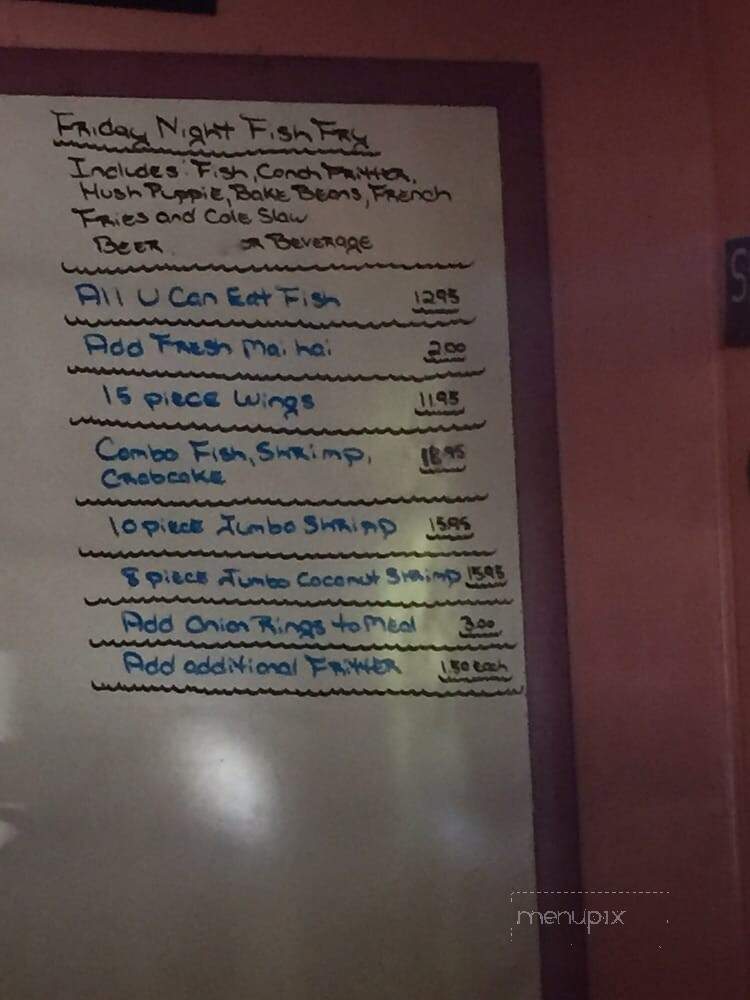 Friday Night Fish Fry
Includes: Fish, Conch Fritter,
Hush Puppie, Bake Beans, French
Fries and Cole Slaw
Beer or Beverage
All U Can Eat Fish 1295
Add Fresh Mai hai 200
15 piece Wings 1195
Combo Fish, Shrimp, 1895
Crabcake
10 piece Jumbo Shrimp 1595
8 piece Jumbo Coconut Shrimp 1595
Add Onion Rings to Meal 3.00
Add additional Fritter 1.50 each
S
menupix